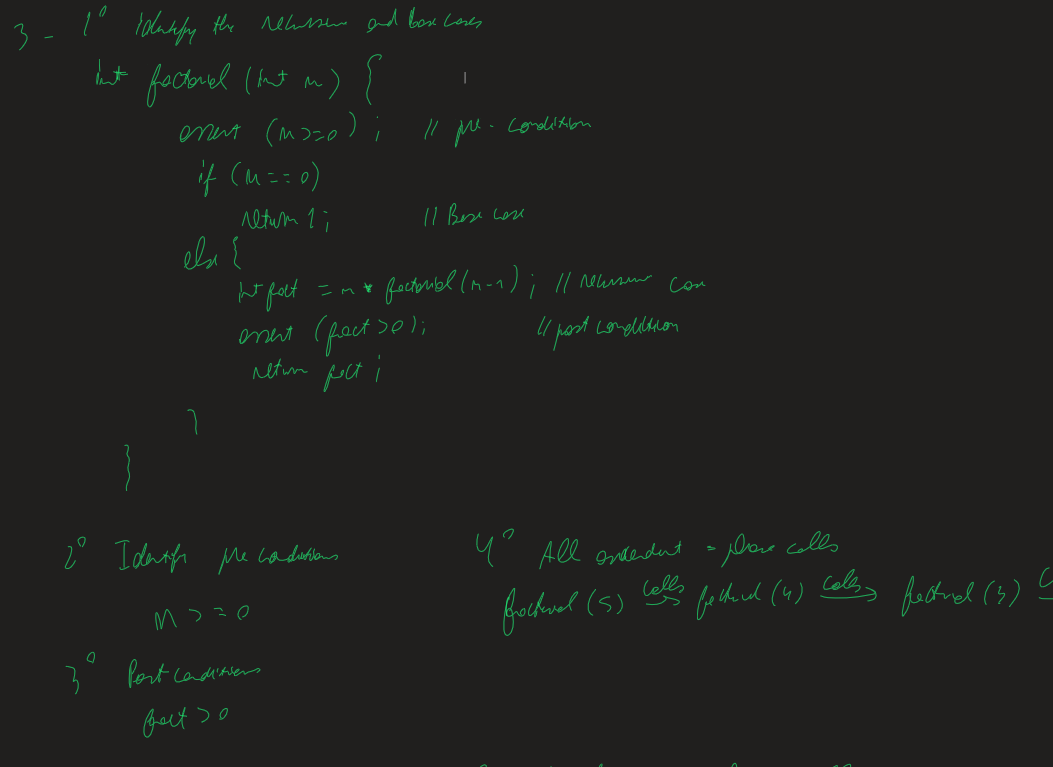 3 - 1° Identify the recursive and base cases
int factorial (int n) {
assert (n >= 0) ; // pre-condition
if (n == 0)
return 1; // Base case
else {
int fact = n * factorial (n-1) ; // recursive case
assert (fact > 0); // post condition
return fact ;
}
}
2° Identify pre conditions
n >= 0
3° Post conditions
fact > 0
4° All = calls
factorial (5) calls → factorial (4) calls → factorial (3)